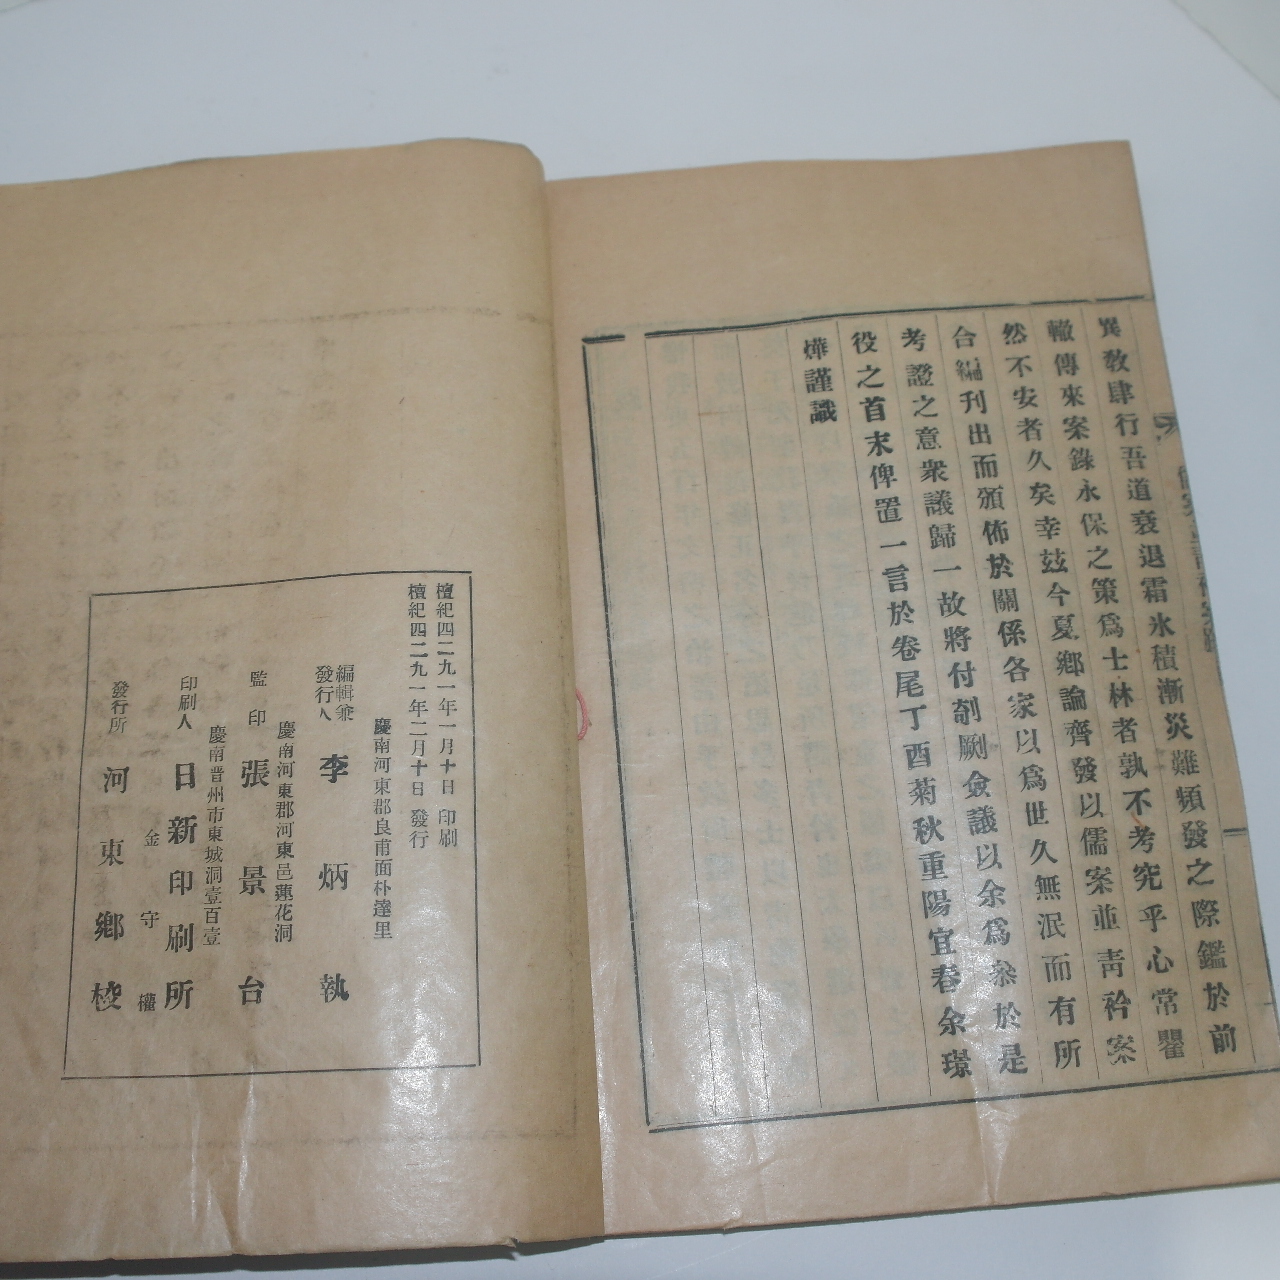 異敎肆行吾道衰退霜氷積漸災難頻發之際鑑於前
轍傳來案錄永保之策爲士林者孰不考究乎心常瞿
然不安者久矣幸玆今夏鄕論齊發以儒案並靑衿案
合編刊出而頒佈於關係各家以爲世久無泯而有所
考證之意衆議歸一故將付剞劂僉議以余爲叅於是
役之首末俾置一言於卷尾丁酉菊秋重陽宜春余璟
燁謹識
檀紀四二九一年一月十日 印刷
檀紀四二九一年二月十日 發行
慶南河東郡良甫面朴達里
編輯兼
發行人 李炳執
慶南河東郡河東邑蓮花洞
監印 張景台
慶南晋州市東城洞壹百壹
印刷人 日新印刷所
金守權
發行所 河東鄕校